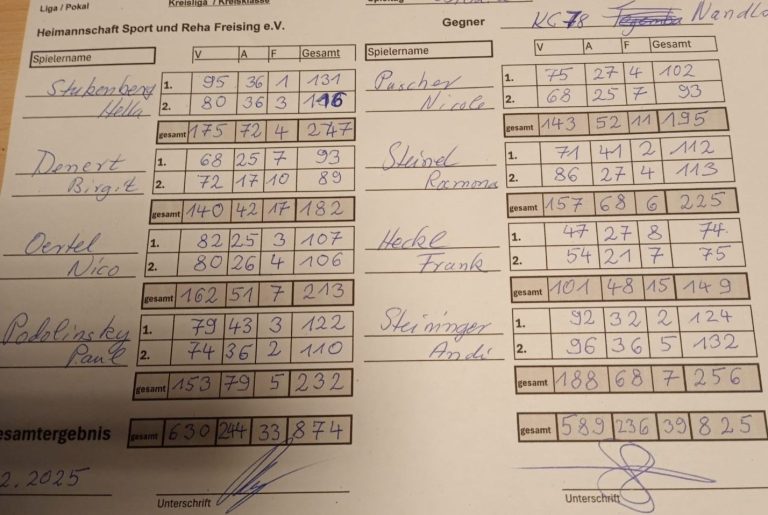 Liga / Pokal
Kreisliga / Kreisklasse
Heimannschaft Sport und Reha Freising e.V.
Gegner KC 78 Nandls
Spielername V A F Gesamt
Spielername V A F Gesamt
Stubenberg 1. 95 36 1 131
Hella 2. 80 36 3 116
gesamt 175 72 4 247
Puscher 1. 75 27 4 102
Nicole 2. 68 25 7 93
gesamt 143 52 11 195
Denert 1. 68 25 7 93
Birgit 2. 72 17 10 89
gesamt 140 42 17 182
Steinel 1. 71 41 2 112
Ramona 2. 86 27 4 113
gesamt 157 68 6 225
Oertel 1. 82 25 3 107
Nico 2. 80 26 4 106
gesamt 162 51 7 213
Heckl 1. 47 27 8 74
Frank 2. 54 21 7 75
gesamt 101 48 15 149
Podolinsky 1. 79 43 3 122
Paul 2. 74 36 2 110
gesamt 153 79 5 232
Steininger 1. 92 32 2 124
Andi 2. 96 36 5 132
gesamt 188 68 7 256
esamtergebnis gesamt 630 244 33 874
gesamt 589 236 39 825
2.2025
Unterschrift
Unterschrift